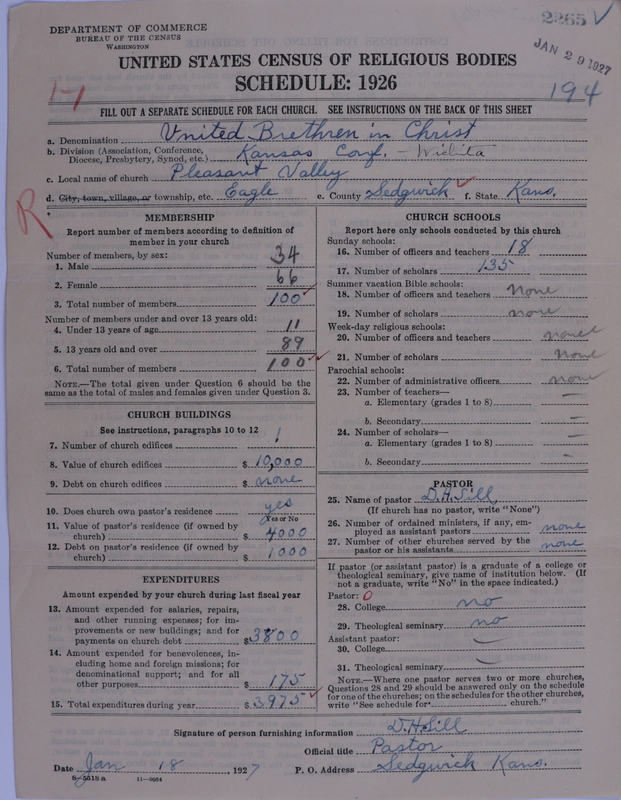 2265 V
DEPARTMENT OF COMMERCE
BUREAU OF THE CENSUS
WASHINGTON
JAN 29 1927
UNITED STATES CENSUS OF RELIGIOUS BODIES
SCHEDULE: 1926
1-1
194
FILL OUT A SEPARATE SCHEDULE FOR EACH CHURCH. SEE INSTRUCTIONS ON THE BACK OF THIS SHEET
a. Denomination United Brethren in Christ
b. Division (Association, Conference, Diocese, Presbytery, Synod, etc.) Kansas Conf. - Wichita
c. Local name of church Pleasant Valley
d. City, town, village, or township, etc. Eagle e. County Sedgwick f. State Kans.
R
MEMBERSHIP
Report number of members according to definition of
member in your church
Number of members, by sex:
1. Male 34
2. Female 66
3. Total number of members 100
Number of members under and over 13 years old:
4. Under 13 years of age 11
5. 13 years old and over 89
6. Total number of members 100
NOTE.—The total given under Question 6 should be
same as the total of males and females given under Question 3.
CHURCH BUILDINGS
See instructions, paragraphs 10 to 12
7. Number of church edifices 1
8. Value of church edifices $ 10,000
9. Debt on church edifices $ none
10. Does church own pastor's residence yes
Yes or No
11. Value of pastor's residence (if owned by
church) $ 4000
12. Debt on pastor's residence (if owned by
church) $ 1000
EXPENDITURES
Amount expended by your church during last fiscal year
13. Amount expended for salaries, repairs,
and other running expenses; for im-
provements or new buildings; and for
payments on church debt $ 3800
14. Amount expended for benevolences, in-
cluding home and foreign missions; for
denominational support; and for all
other purposes $ 175
15. Total expenditures during year $ 3975
CHURCH SCHOOLS
Report here only schools conducted by this church
Sunday schools:
16. Number of officers and teachers 18
17. Number of scholars 135
Summer vacation Bible schools:
18. Number of officers and teachers none
19. Number of scholars none
Week-day religious schools:
20. Number of officers and teachers none
21. Number of scholars none
Parochial schools:
22. Number of administrative officers none
23. Number of teachers—
a. Elementary (grades 1 to 8) —
b. Secondary —
24. Number of scholars—
a. Elementary (grades 1 to 8) —
b. Secondary —
PASTOR
25. Name of pastor D.H. Sill
(If church has no pastor, write "None")
26. Number of ordained ministers, if any, em-
ployed as assistant pastors none
27. Number of other churches served by the
pastor or his assistants none
If pastor (or assistant pastor) is a graduate of a college or
theological seminary, give name of institution below. (If
not a graduate, write "No" in the space indicated.)
Pastor: 0
28. College no
29. Theological seminary no
Assistant pastor:
30. College —
31. Theological seminary —
NOTE.—Where one pastor serves two or more churches,
Questions 28 and 29 should be answered only on the schedule
for one of the churches; on the schedules for the other churches,
write "See schedule for church."
Signature of person furnishing information D.H. Sill
Official title Pastor
Date Jan 18, 1927 P. O. Address Sedgwick Kans.
8-5518a 11-9664